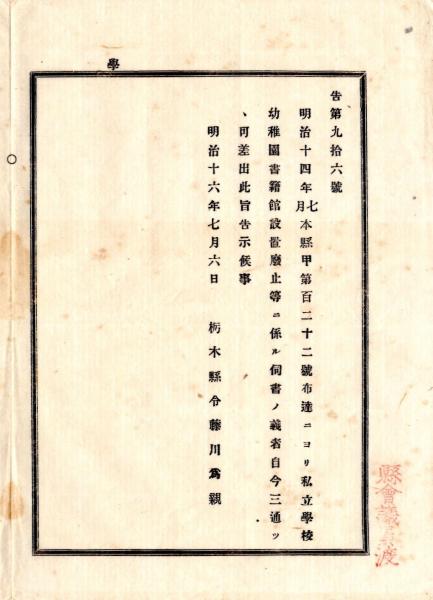 學
告第九拾六號
明治十四年七月本縣甲第百二十二號布達ニヨリ私立學校
幼稚園書籍館設置廢止等ニ係ル伺書ノ義者自今三通ツ
、可差出此旨告示候事
明治十六年七月六日 栃木縣令藤川爲親
縣會議